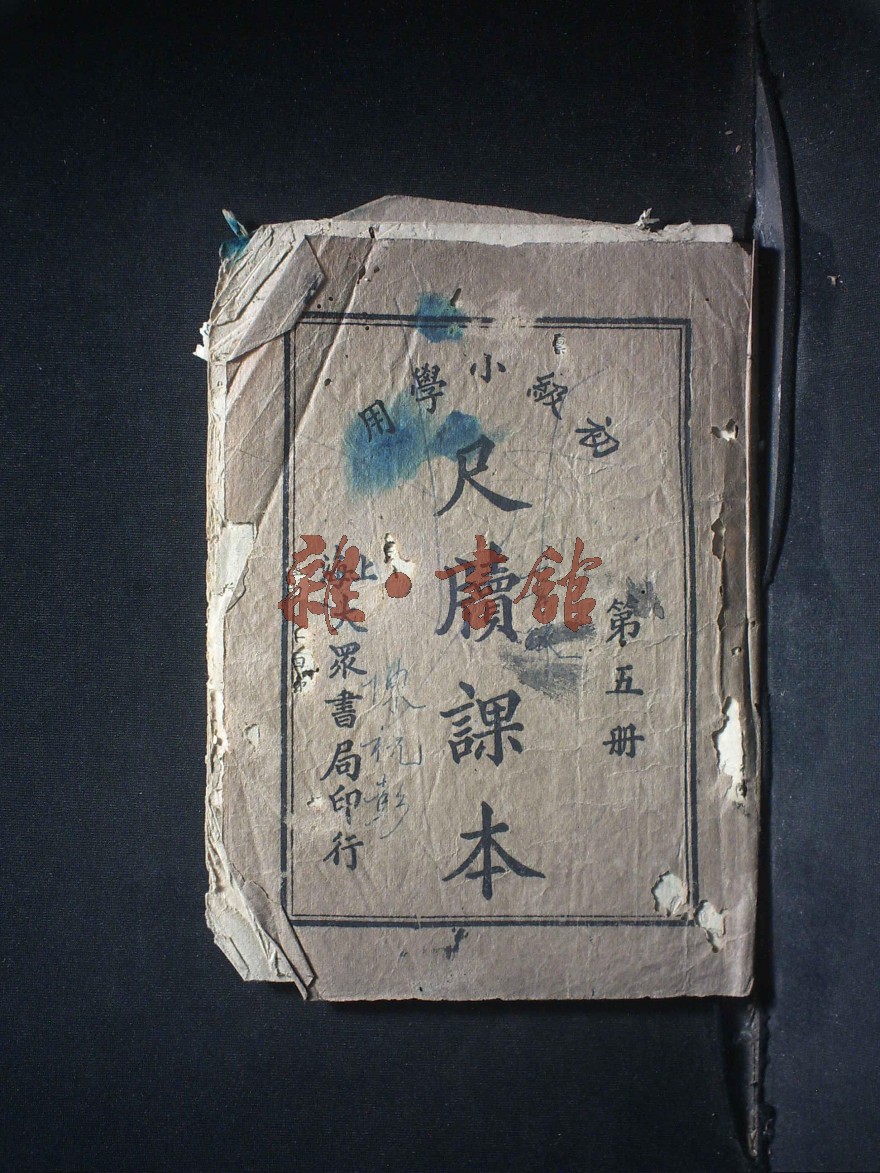 初級小學用
第五册
尺牘課本
上海大眾書局印行
雜·書館